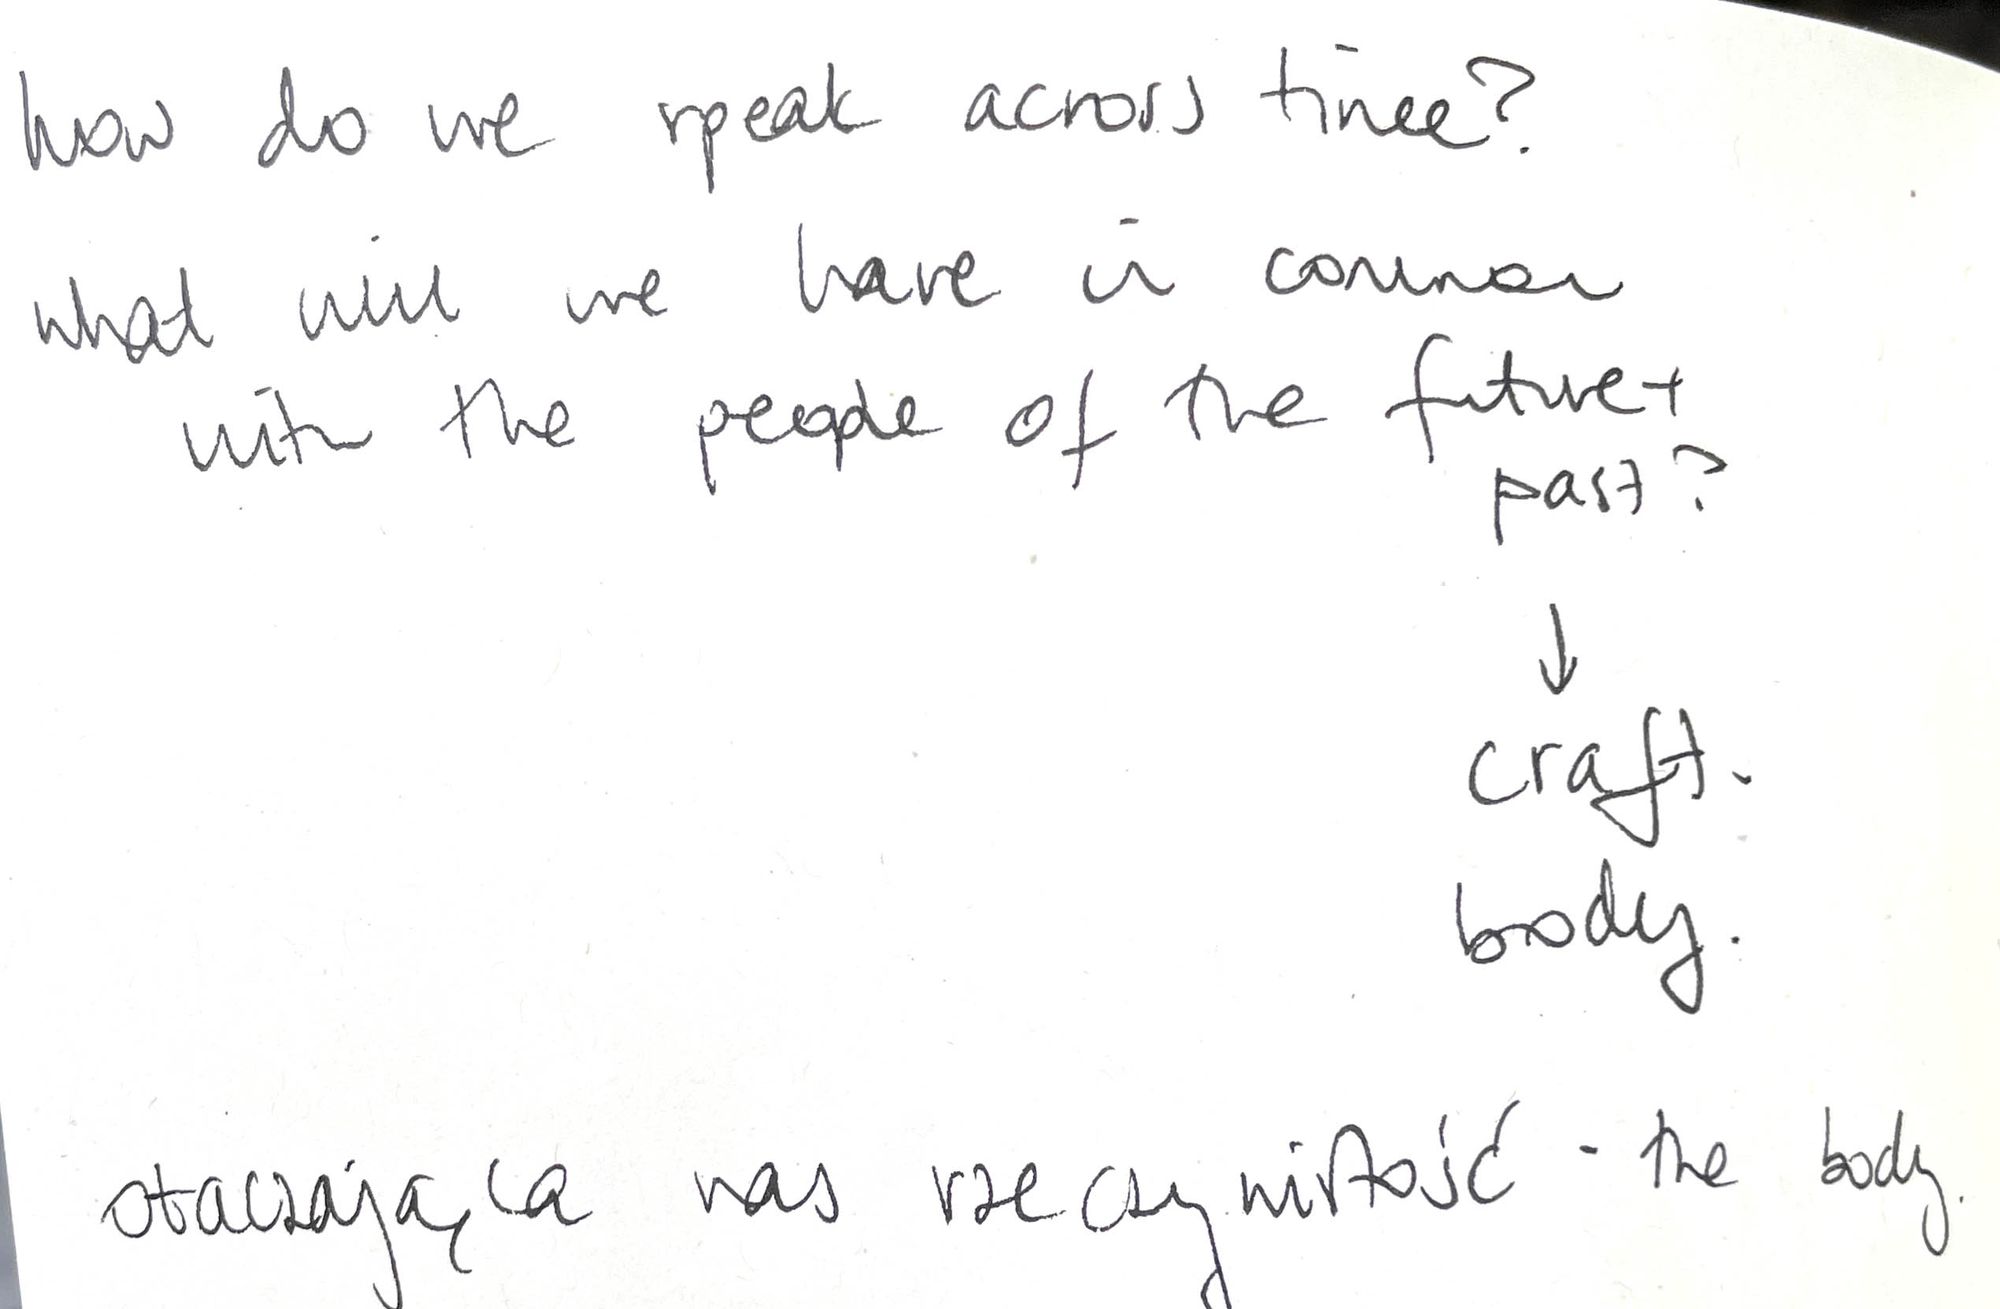 how do we speak across time?
what will we have in common
with the people of the future +
past?
↓
craft.
body.
otaczająca nas rzeczywistość - the body.